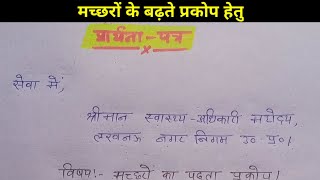 मच्छरों के बढ़ते प्रकोप हेतु
प्रार्थना-पत्र
सेवा में,
श्रीमान स्वास्थ्य-अधिकारी महोदय,
लखनऊ नगर निगम उ०प्र०।
विषयः- मच्छरों का बढ़ता प्रकोप।